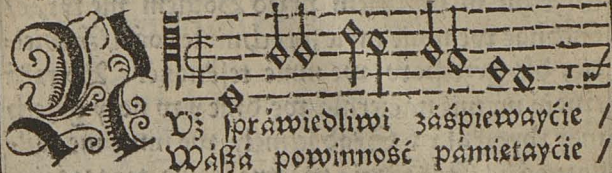 NVż ſpráwiedliwi záśpiewayćie /
Wáßá powinność pámiętayćie /